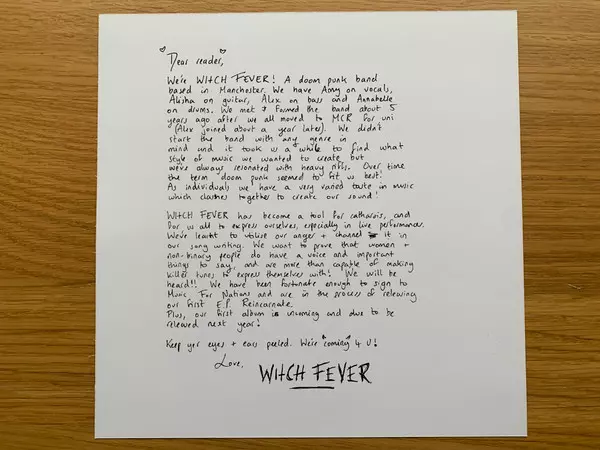 Dear reader,
We're WITCH FEVER! A doom punk band
based in Manchester. We have Amy on vocals,
Alisha on guitar, Alex on bass and Annabelle
on drums. We met + formed the band about 5
years ago after we all moved to MCR for uni
(Alex joined about a year later). We didn't
start the band with any genre in
mind and it took us a while to find what
style of music we wanted to create but
we've always resonated with heavy riffs. Over time
the term doom punk seemed to fit us best!
As individuals we have a very varied taste in music
which clashes together to create our sound!
WITCH FEVER has become a tool for catharsis, and
for us all to express ourselves, especially in live performance.
We've learnt to utilise our anger + channel it in
our song writing. We want to prove that women +
non-binary people do have a voice and important
things to say, and are more than capable of making
killer tunes to express themselves with! We will be
heard!! We have been fortunate enough to sign to
Music For Nations and are in the process of releasing
our first E.P. Reincarnate.
Plus, our first album is incoming and due to be
released next year!
Keep yer eyes + ears peeled. We're "coming" 4 U!
Love,
WITCH FEVER